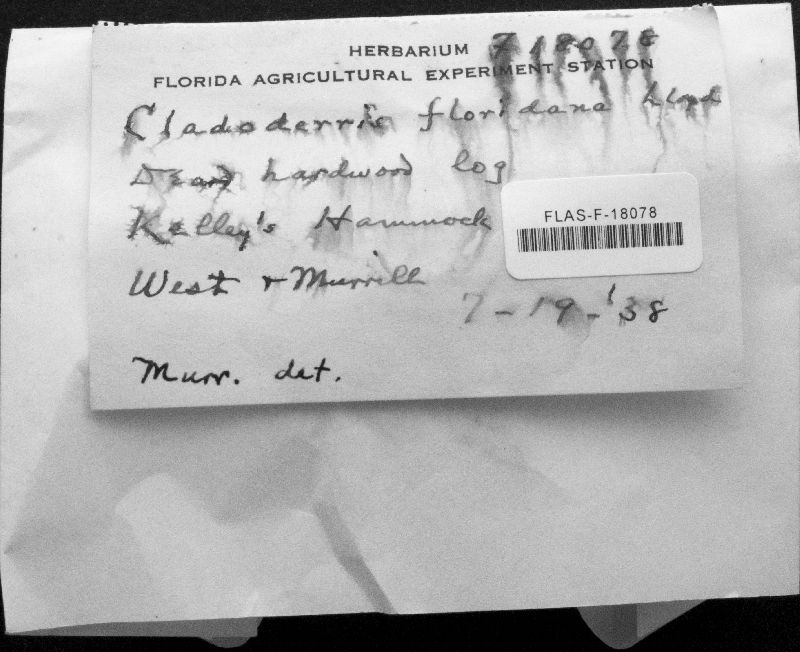 HERBARIUM F18078
FLORIDA AGRICULTURAL EXPERIMENT STATION
Cladoderris floridana Lloyd
Dead hardwood log
Kelley's Hammock
FLAS-F-18078
West & Murrill
7-19-'38
Murr. det.